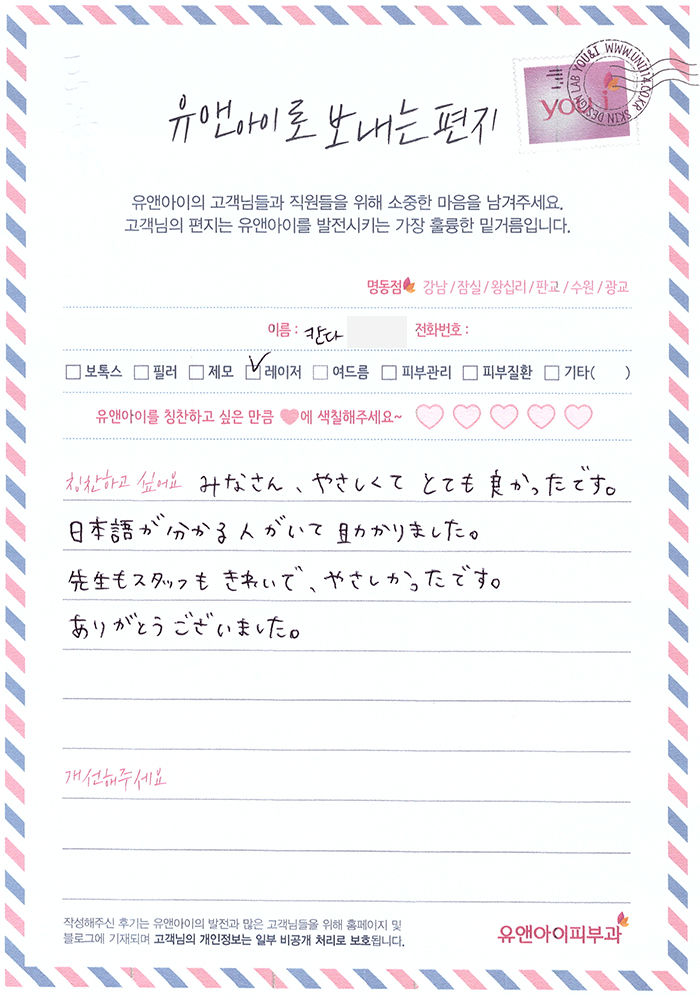 유앤아이로 보내는 편지
you i
SKIN DESIGN LAB YOU&I WWW.UNI114.CO.KR
유앤아이의 고객님들과 직원들을 위해 소중한 마음을 남겨주세요.
고객님의 편지는 유앤아이를 발전시키는 가장 훌륭한 밑거름입니다.
명동점 강남 / 잠실 / 왕십리 / 판교 / 수원 / 광교
이름 : 칸다 전화번호 :
보톡스 필러 제모 레이저 여드름 피부관리 피부질환 기타( )
유앤아이를 칭찬하고 싶은 만큼 에 색칠해주세요~
칭찬하고 싶어요 みなさん、やさしくて とても 良かったです。
日本語が分かる人がいて 助かりました。
先生もスタッフも きれいで、やさしかったです。
ありがとうございました。
개선해주세요
작성해주신 후기는 유앤아이의 발전과 많은 고객님들을 위해 홈페이지 및
블로그에 기재되며 고객님의 개인정보는 일부 비공개 처리로 보호됩니다.
유앤아이피부과